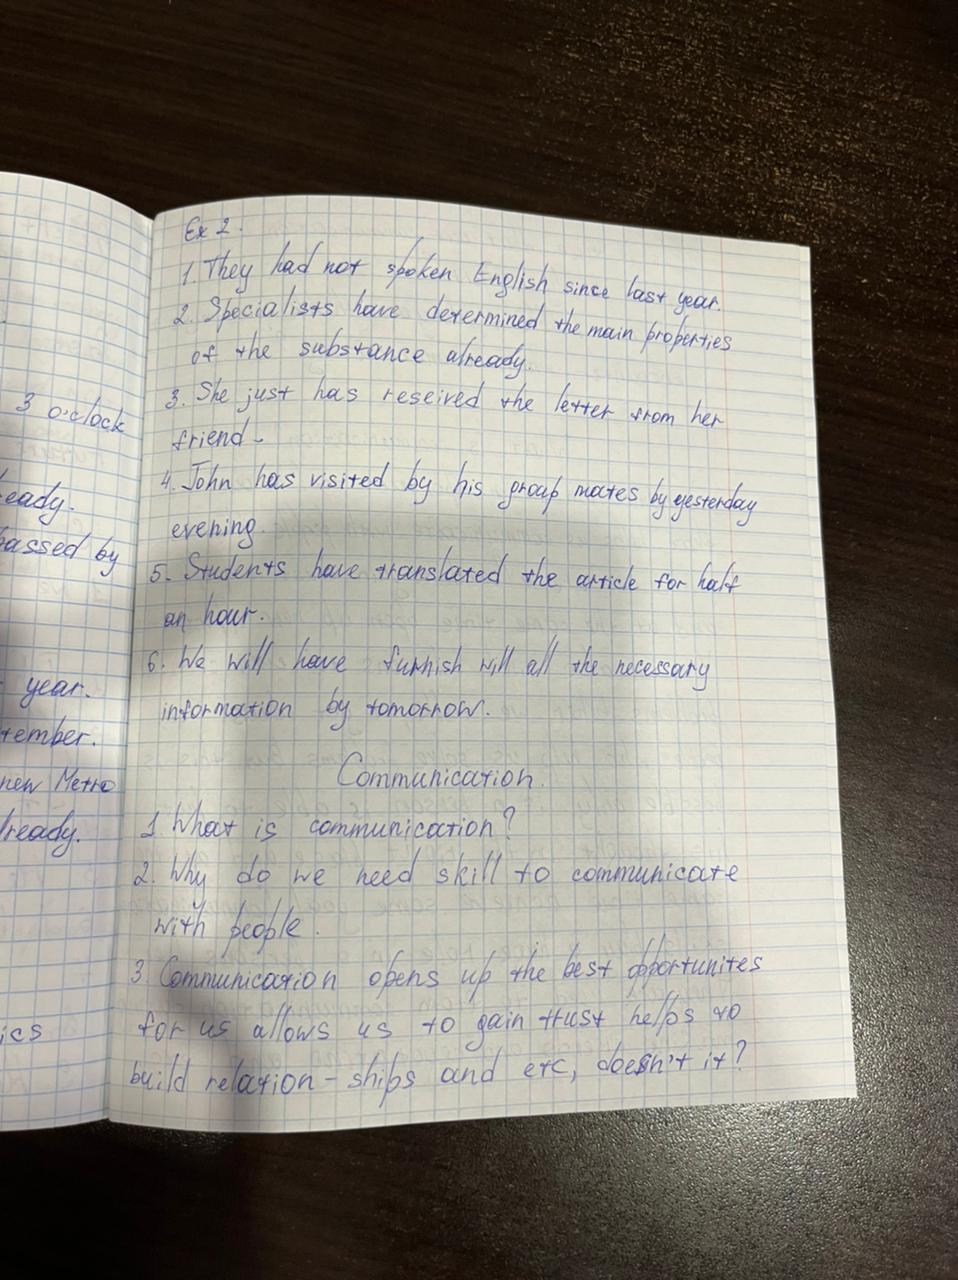 3 o'clock
eady.
passed by
year.
tember.
new Metro
lready.
ics
Ex 2.
1. They had not spoken English since last year.
2. Specialists have determined the main properties
of the substance already.
3. She just has reseived the letter from her
friend.
4. John has visited by his group mates by yesterday
evening.
5. Students have translated the article for half
an hour.
6. We will have furnish will all the necessary
information by tomorrow.
Communication.
1. What is communication?
2. Why do we need skill to communicate
with people.
3 Communication opens up the best opportunites
for us allows us to gain trust helps to
build relation-ships and etc, doesn't it?